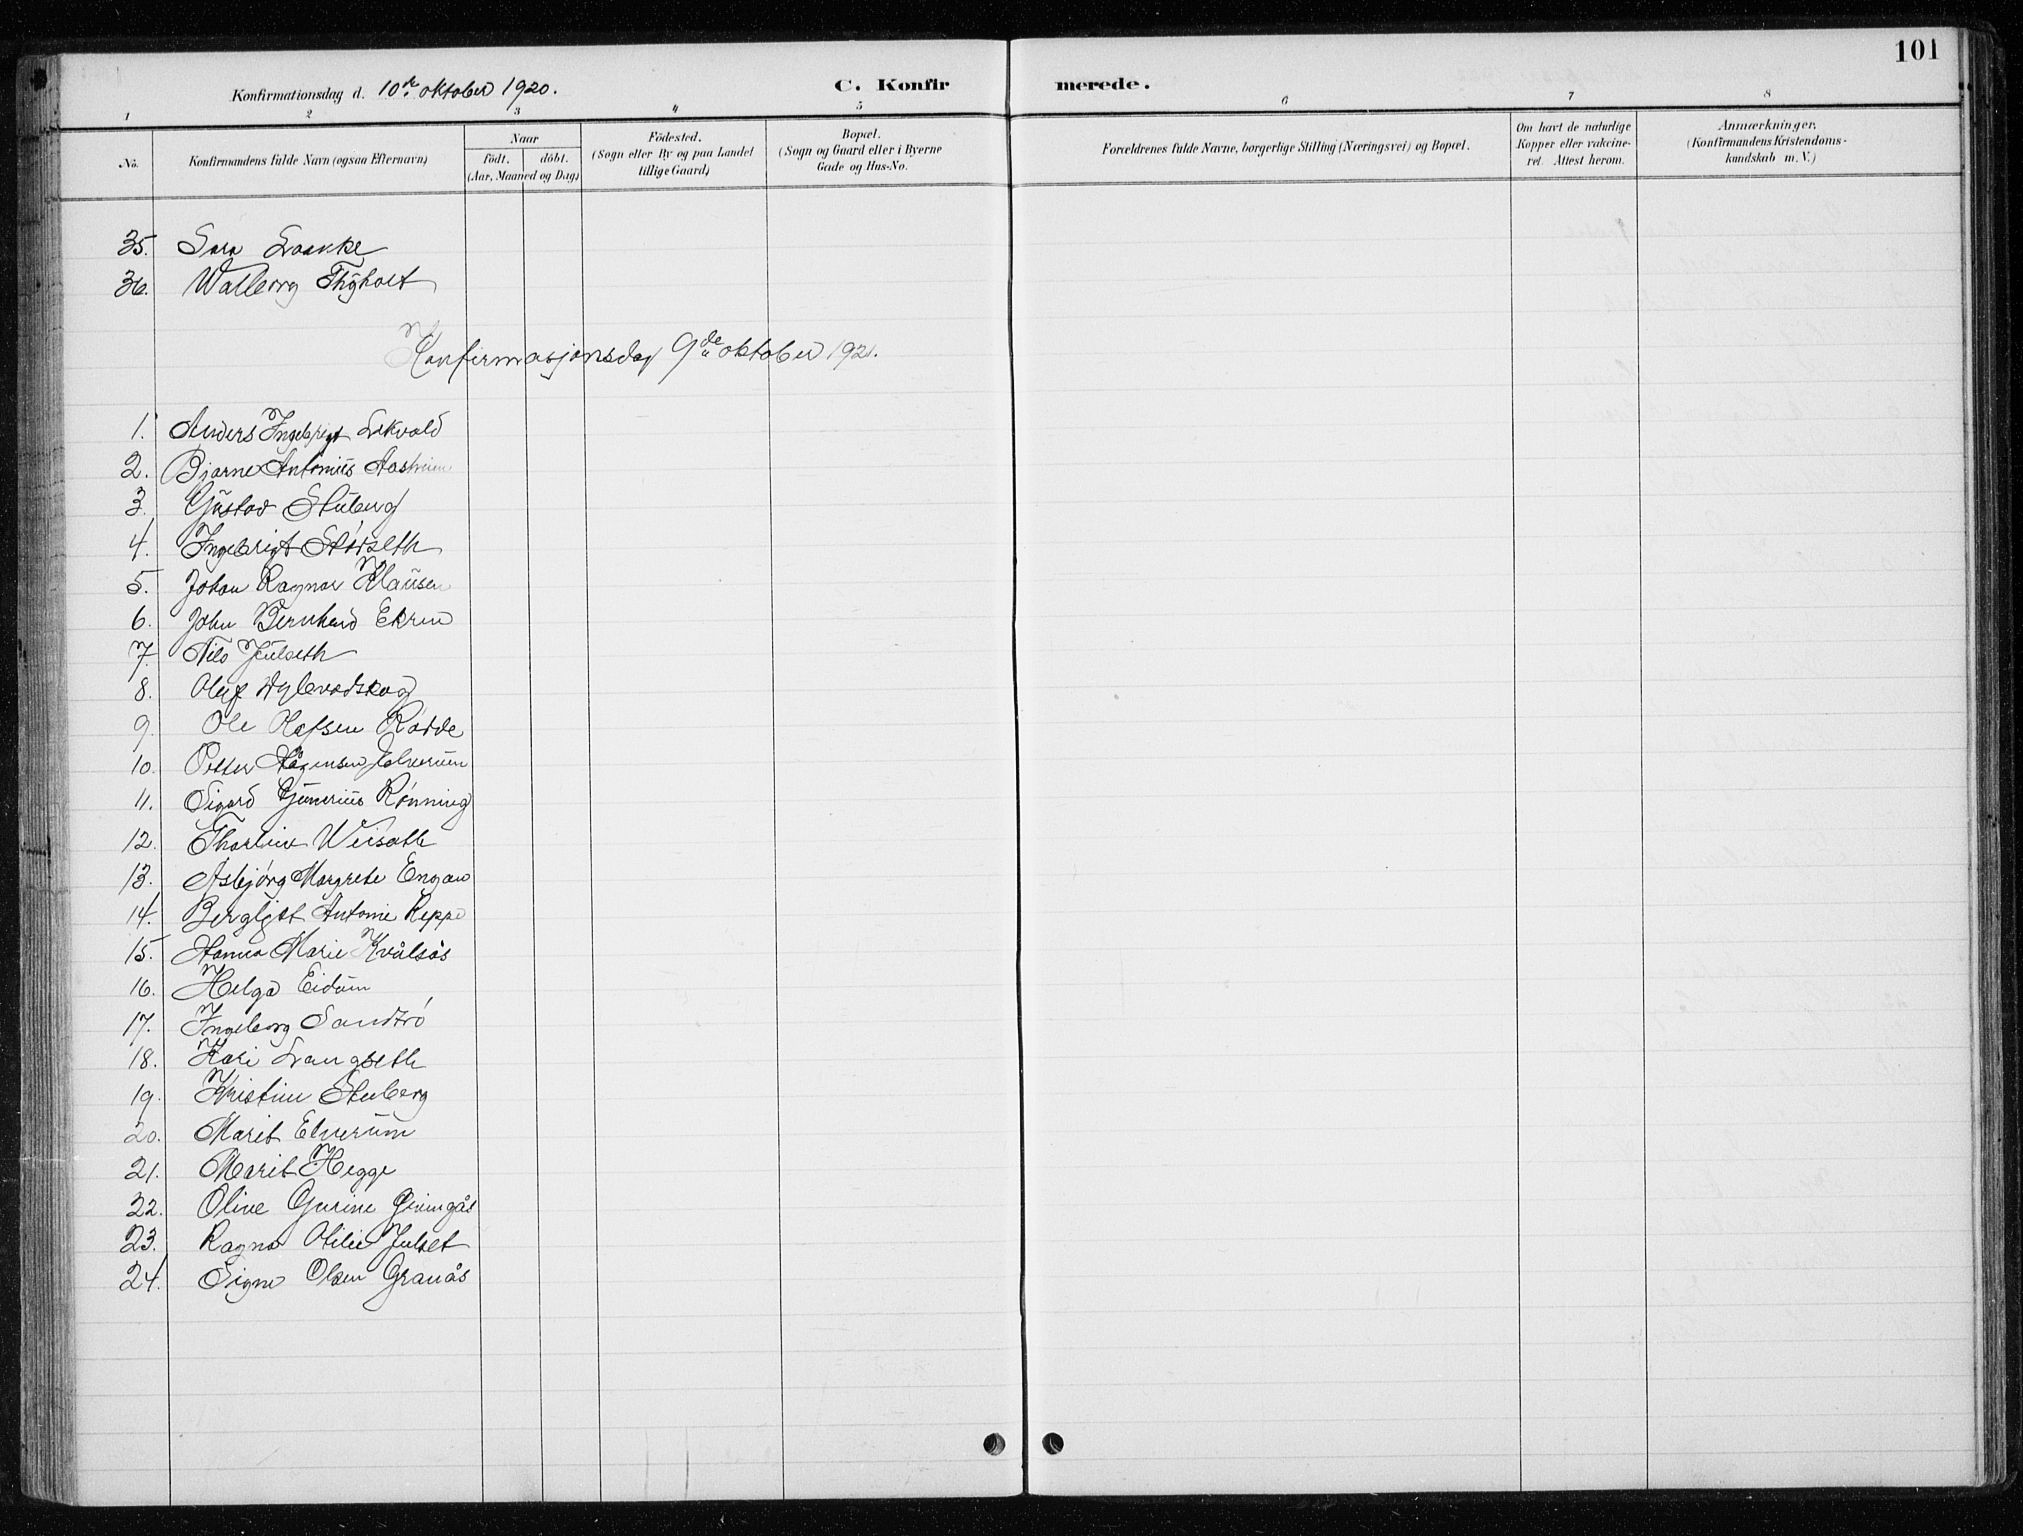 101
Konfirmationsdag d. 10de oktober 1920.
C. Konfir
merede.
1 2 3 4 5 6 7 8
No.
Konfirmandens fulde Navn (ogsaa Efternavn)
Naar
födt. döbt.
(Aar, Maaned og Dag)
Födested.
(Sogn eller By og paa Landet
tillige Gaard)
Bopæl.
(Sogn og Gaard eller i Byerne
Gade og Hus-No.
Forældrenes fulde Navne, borgerlige Stilling (Næringsvei) og Bopæl.
Om havt de naturlige
Kopper eller vakcine-
ret. Attest herom.
Anmærkninger.
(Konfirmandens Kristendoms-
kundskab m. V.)
35. Sara Laakke
36. Walborg Thyholt
Konfirmasjonsdag 9de oktober 1921.
1. Anders Ingebrigt Lekvold
2. Bjarne Antonius Aasheim
3. Gustav Stuberg
4. Ingebrigt Störseth
5. Johan Ragnar Klausen
6. John Bernhard Ekren
7. Nils Julseth
8. Oluf
9. Ole Rødde
10. Petter
11. Sigurd Gunerius Rønning
12. Thorleiv Weisath
13. Asbjørg Margrete Engan
14. Bergljot Antonie Reppe
15. Hanna Marie Kvålsås
16. Helga Eidum
17. Ingeborg Sandtrö
18. Kari Langseth
19. Kristine Stuberg
20. Marit Elverum
21. Marit Hegge
22. Olive Gurine
23. Ragna Otilie Julset
24. Signe Olsen Granås